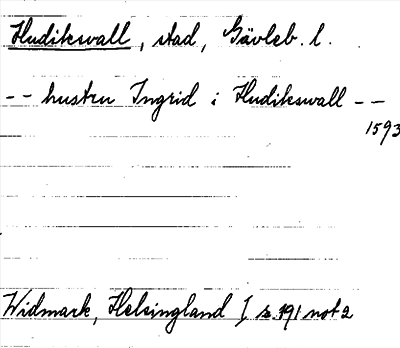 Hudikswall, stad, Gävleb. l.
-- hustru Ingrid i Hudikswall --
1593
Widmark, Helsingland I s. 191 not 2